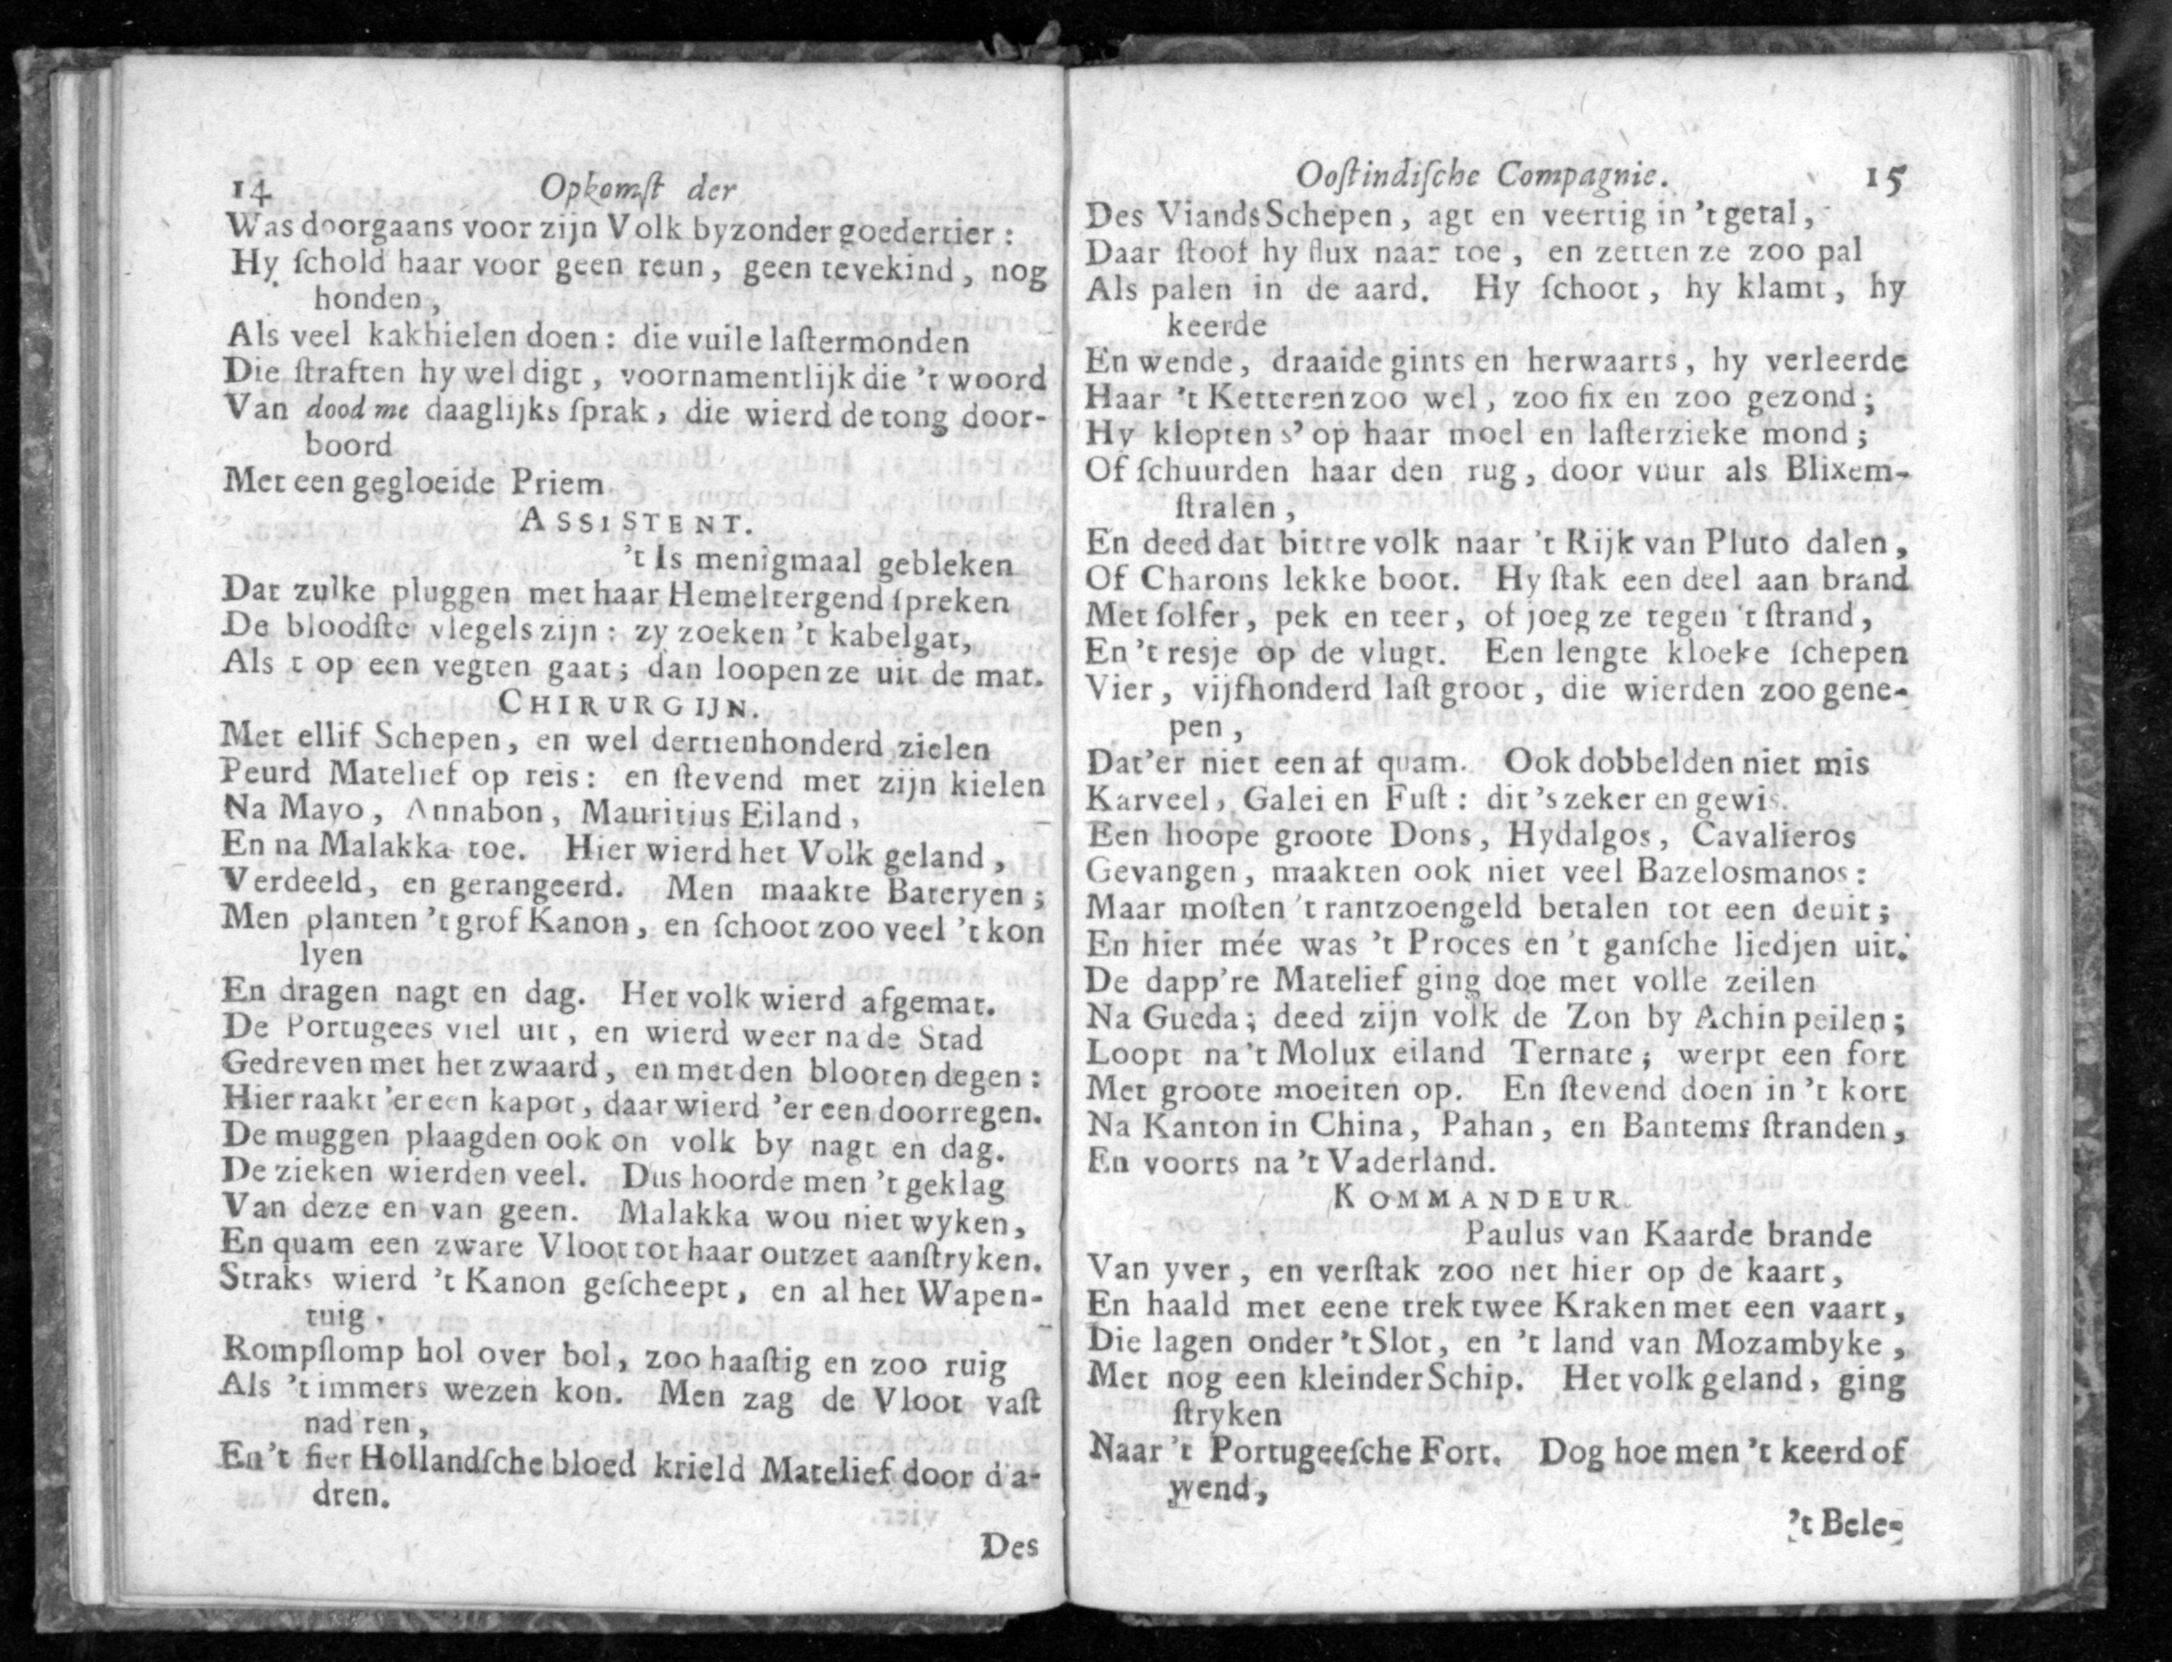 14 Opkomſt der
Was doorgaans voor zijn Volk byzonder goedertier:
Hy ſchold haar voor geen reun, geen tevekind, nog
honden,
Als veel kakhielen doen: die vuile laſtermonden
Die ſtraften hy wel digt, voornamentlijk die 't woord
Van dood me daaglijks ſprak, die wierd de tong door-
boord
Met een gegloeide Priem
ASSISTENT.
't Is menigmaal gebleken
Dat zulke pluggen met haar Hemeltergend ſpreken
De bloodſte vlegels zijn: zy zoeken 't kabelgat,
Als t op een vegten gaat; dan loopen ze uit de mat.
CHIRURGIJN.
Met ellif Schepen, en wel dertienhonderd zielen
Peurd Matelief op reis: en ſtevend met zijn kielen
Na Mayo, Annabon, Mauritius Eiland,
En na Malakka toe. Hier wierd het Volk geland,
Verdeeld, en gerangeerd. Men maakte Bateryen;
Men planten 't grof Kanon, en ſchoot zoo veel 't kon
lyen
En dragen nagt en dag. Het volk wierd afgemat.
De Portugees viel uit, en wierd weer na de Stad
Gedreven met het zwaard, en met den blooten degen:
Hier raakt 'er een kapot, daar wierd 'er een doorregen.
De muggen plaagden ook on volk by nagt en dag.
De zieken wierden veel. Dus hoorde men 't geklag
Van deze en van geen. Malakka wou niet wyken,
En quam een zware Vloot tot haar outzet aanſtryken.
Straks wierd 't Kanon geſcheept, en al het Wapen-
tuig.
Rompſlomp hol over bol, zoo haaſtig en zoo ruig
Als 't immers wezen kon. Men zag de Vloot vaſt
nad ren,
En 't fier Hollandſche bloed krield Matelief door d a-
dren.
Des
Ooſtindiſche Compagnie. 15
Des Viands Schepen, agt en veertig in 't getal,
Daar ſtoof hy flux naar toe, en zetten ze zoo pal
Als palen in de aard. Hy ſchoot, hy klamt, hy
keerde
En wende, draaide gints en herwaarts, hy verleerde
Haar 't Ketteren zoo wel, zoo fix en zoo gezond;
Hy klopten s' op haar moel en laſterzieke mond;
Of ſchuurden haar den rug, door vuur als Blixem-
ſtralen,
En deed dat bittre volk naar 't Rijk van Pluto dalen,
Of Charons lekke boot. Hy ſtak een deel aan brand
Met ſolfer, pek en teer, of joeg ze tegen 't ſtrand,
En 't resje op de vlugt. Een lengte kloeke ſchepen
Vier, vijfhonderd laſt groot, die wierden zoo gene-
pen,
Dat'er niet een af quam. Ook dobbelden niet mis
Karveel, Galei en Fuſt: dit 's zeker en gewis.
Een hoope groote Dons, Hydalgos, Cavalieros
Gevangen, maakten ook niet veel Bazelosmanos:
Maar moſten 't rantzoengeld betalen tot een deuit;
En hier mée was 't Proces en 't ganſche liedjen uit.
De dapp're Matelief ging doe met volle zeilen
Na Gueda; deed zijn volk de Zon by Achin peilen;
Loopt na 't Molux eiland Ternate; werpt een fort
Met groote moeiten op. En ſtevend doen in 't kort
Na Kanton in China, Pahan, en Bantems ſtranden,
En voorts na 't Vaderland.
KOMMANDEUR.
Paulus van Kaarde brande
Van yver, en verſtak zoo net hier op de kaart,
En haald met eene trek twee Kraken met een vaart,
Die lagen onder 't Slot, en 't land van Mozambyke,
Met nog een kleinder Schip. Het volk geland, ging
ſtryken
Naar 't Portugeeſche Fort. Dog hoe men 't keerd of
wend,
't Bele-